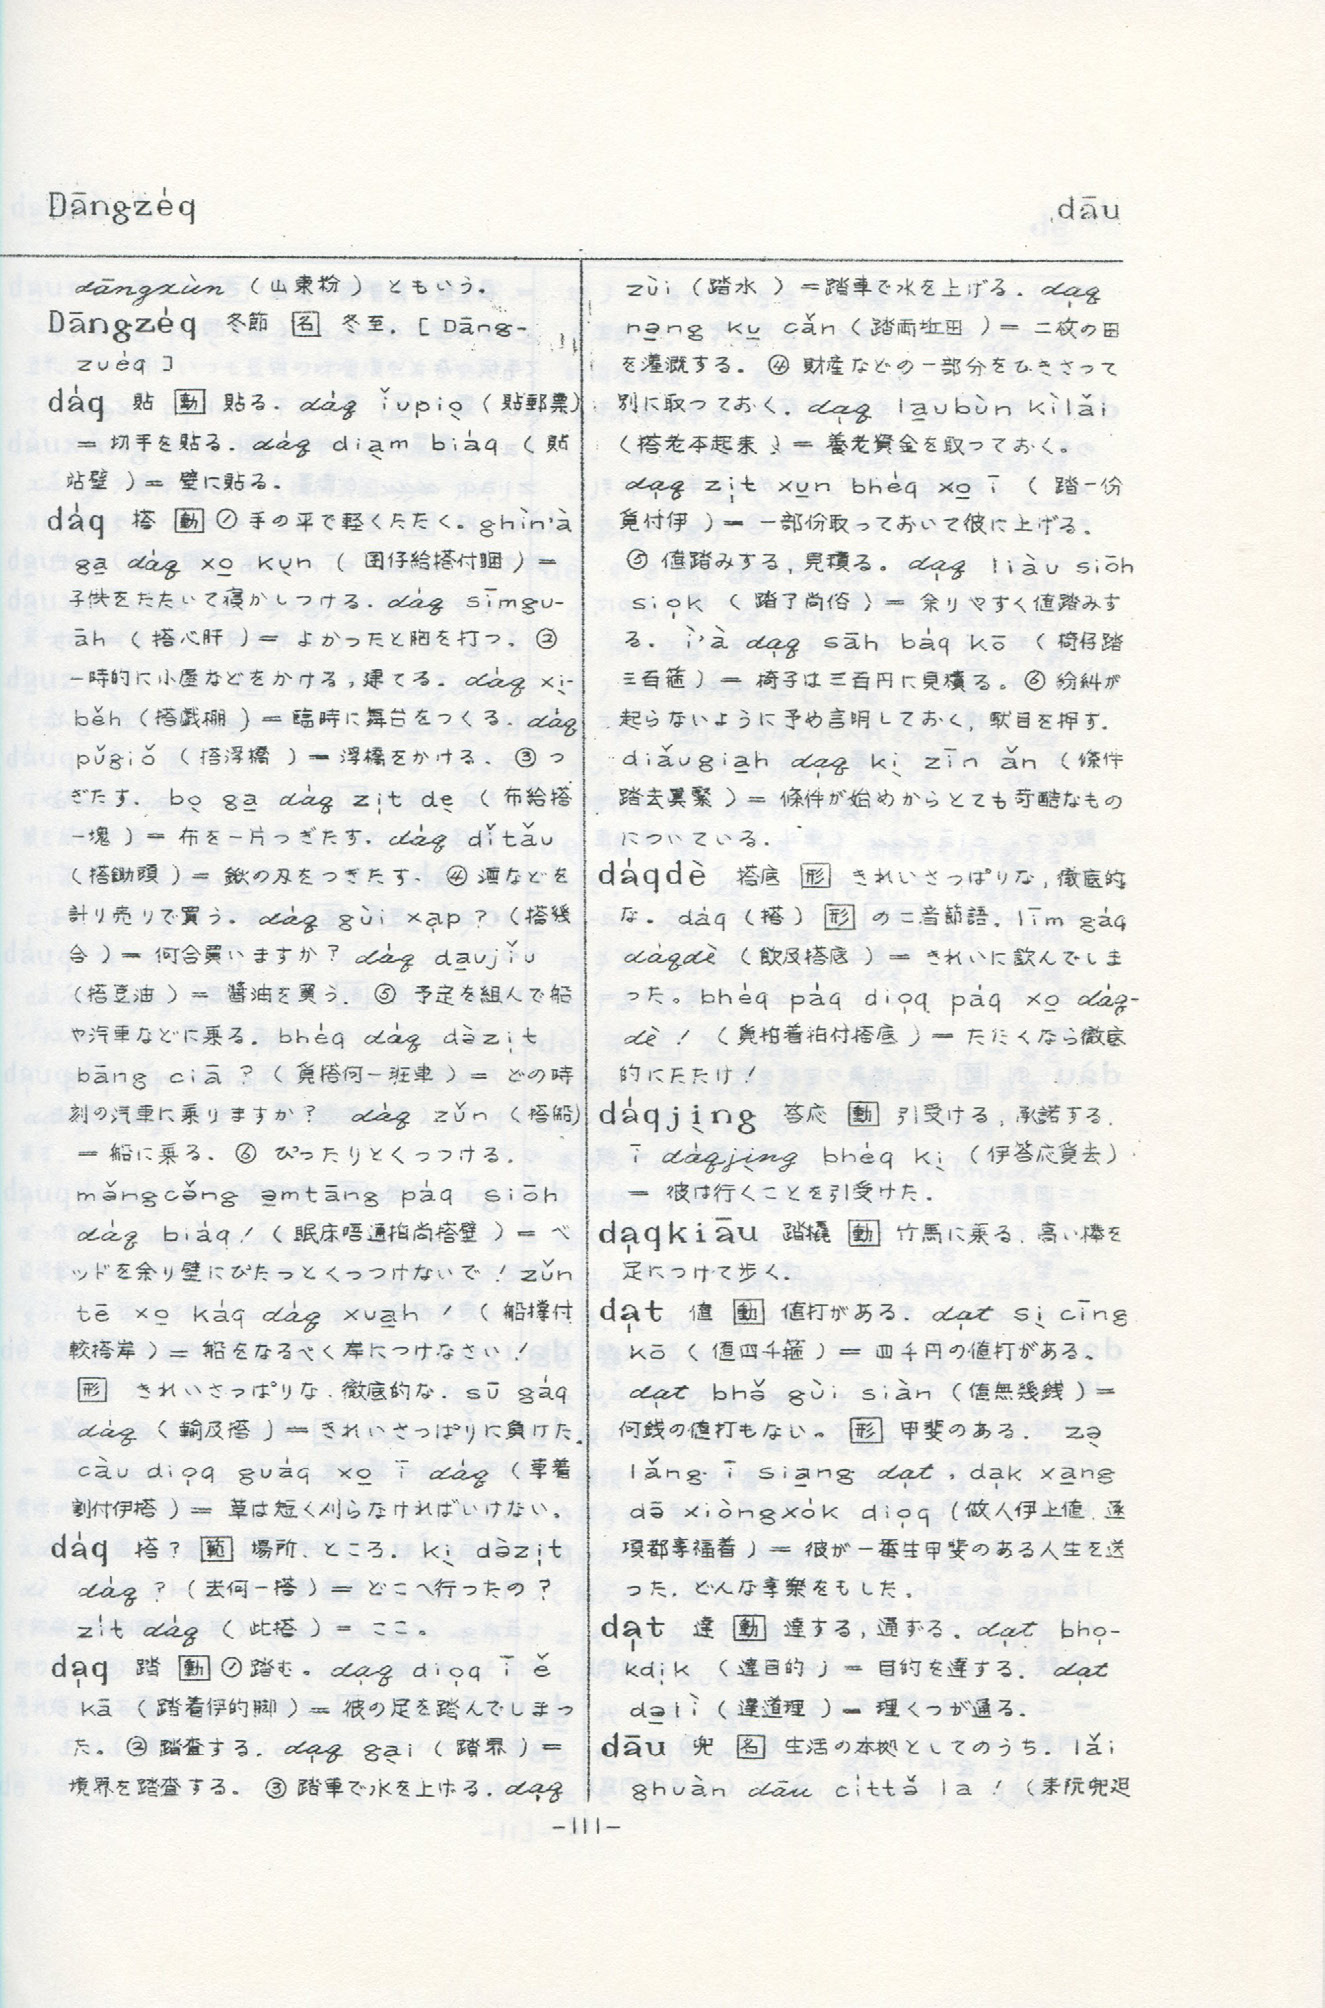 Dāngze̍q
dāu
dāngxùn（山東粉）ともいう。
Dāngze̍q 冬節 [名] 冬至。[Dāng-
zue̍q]
da̍q 貼 [動] 貼る。da̍q ǐupiọ（貼郵票）
＝切手を貼る。da̍q diạm bia̍q（貼
站壁）＝壁に貼る。
da̍q 搭 [動] ①手の平で軽くたたく。ghìn'à
ga̱ da̍q xo̱ kụn（囝仔給搭付睏）＝
子供をたたいて寝かしつける。da̍q sīmgu-
āh（搭心肝）＝よかったと胸を打つ。②
一時的に小屋などをかける，建てる。da̍q xị-
běh（搭戯棚）＝臨時に舞台をつくる。da̍q
pǔgiǒ（搭浮橋）＝浮橋をかける。③つ
ぎたす。bọ ga̱ da̍q zịt dẹ（布給搭
一塊）＝布を一片つぎたす。da̍q dǐtǎu
（搭鋤頭）＝鍬の刃をつぎたす。④酒などを
計り売りで買う。da̍q gùi xạp？（搭幾
合）＝何合買いますか？da̍q da̱ujǐu
（搭豆油）＝醬油を買う。⑤予定を組んで船
や汽車などに乗る。bhe̍q da̍q dəzịt
bāng ciā？（覓搭何一班車）＝どの時
刻の汽車に乗りますか？ da̍q zǔn（搭船）
＝船に乗る。⑥ぴったりとくっつける。
mǎngcǒng ə̱mtāng pa̍q siōh
da̍q bia̍q！（眠床唔通拍尚搭壁）＝ベ
ッドを余り壁にぴたっとくっつけないで！zǔn
tē xo̱ ka̍q da̍q xua̱h！（船撑付
較搭岸）＝船をなるべく岸につけなさい！
[形] きれいさっぱりな，徹底的な。sū ga̍q
da̍q（輸及搭）＝きれいさっぱりに負けた。
càu diọq gua̍q xo̱ ī da̍q（草着
割付伊搭）＝草は短く刈らなければいけない。
da̍q 搭？[範] 場所，ところ。kị dəzịt
da̍q？（去何一搭）＝どこへ行ったの？
zi̍t da̍q（此搭）＝ここ。
dạq 踏 [動] ①踏む。dạq diọq ī ě
kā（踏着伊的脚）＝彼の足を踏んでしまっ
た。②踏査する。dạq gại（踏界）＝
境界を踏査する。③踏車で水を上げる。dạq
zùi（踏水）＝踏車で水を上げる。dạq
nə̱ng ku̱ cǎn（踏両坵田）＝二枚の田
を灌漑する。④財産などの一部分をひきさって
別に取っておく。dạq la̱ubùn kìlǎi
（搭老本起来）＝養老資金を取っておく。
dạq zịt xu̱n bhe̍q xo̱ ī（踏一份
覓付伊）＝一部份取っておいて彼に上げる。
⑤値踏みする，見積る。dạq liàu siōh
siọk（踏了尚俗）＝余りやすく値踏みす
る。ì'à dạq sāh ba̍q kō（椅仔踏
三百箍）＝椅子は三百円に見積る。⑥紛糾が
起らないように予め言明しておく，駄目を押す。
diǎugia̱h dạq kị zīn ǎn（條件
踏去眞緊）＝條件が始めからとても苛酷なもの
についている。
da̍qdè 搭底 [形] きれいさっぱりな，徹底的
な。da̍q（搭）[形] の二音節語。līm ga̍q
da̍qdè（飲及搭底）＝きれいに飲んでしま
った。bhe̍q pa̍q diọq pa̍q xo̱ da̍q-
dè！（覓拍着拍付搭底）＝たたくなら徹底
的にたたけ！
da̍qjịng 答応 [動] 引受ける，承諾する。
ī da̍qjịng bhe̍q kị（伊答応覓去）
＝彼は行くことを引受けた。
dạqkiāu 踏撬 [動] 竹馬に乗る，高い棒を
足につけて歩く。
dạt 値 [動] 値打がある。dạt sị cīng
kō（値四千箍）＝四千円の値打がある。
dạt bhə̌ gùi siàn（値無幾銭）＝
何銭の値打もない。[形] 甲斐のある。zə̣
lǎng ī sia̱ng dạt，dạk xa̱ng
də xiòngxo̍k diọq（做人伊上値，逐
項都享福着）＝彼が一番生甲斐のある人生を送
った，どんな享楽をもした。
dạt 達 [動] 達する，通ずる。dạt bhọ-
kdịk（達目的）＝目的を達する。dạt
də̱lì（達道理）＝理くつが通る。
dāu 兜 [名] 生活の本拠としてのうち。lǎi
ghuàn dāu cittə̌ la！（来阮兜𨑨
-111-